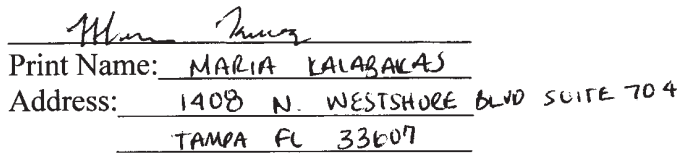 Print Name: MARIA KALABAKAS
Address: 1408 N. WESTSHORE BLVD SUITE 704
TAMPA FL 33607